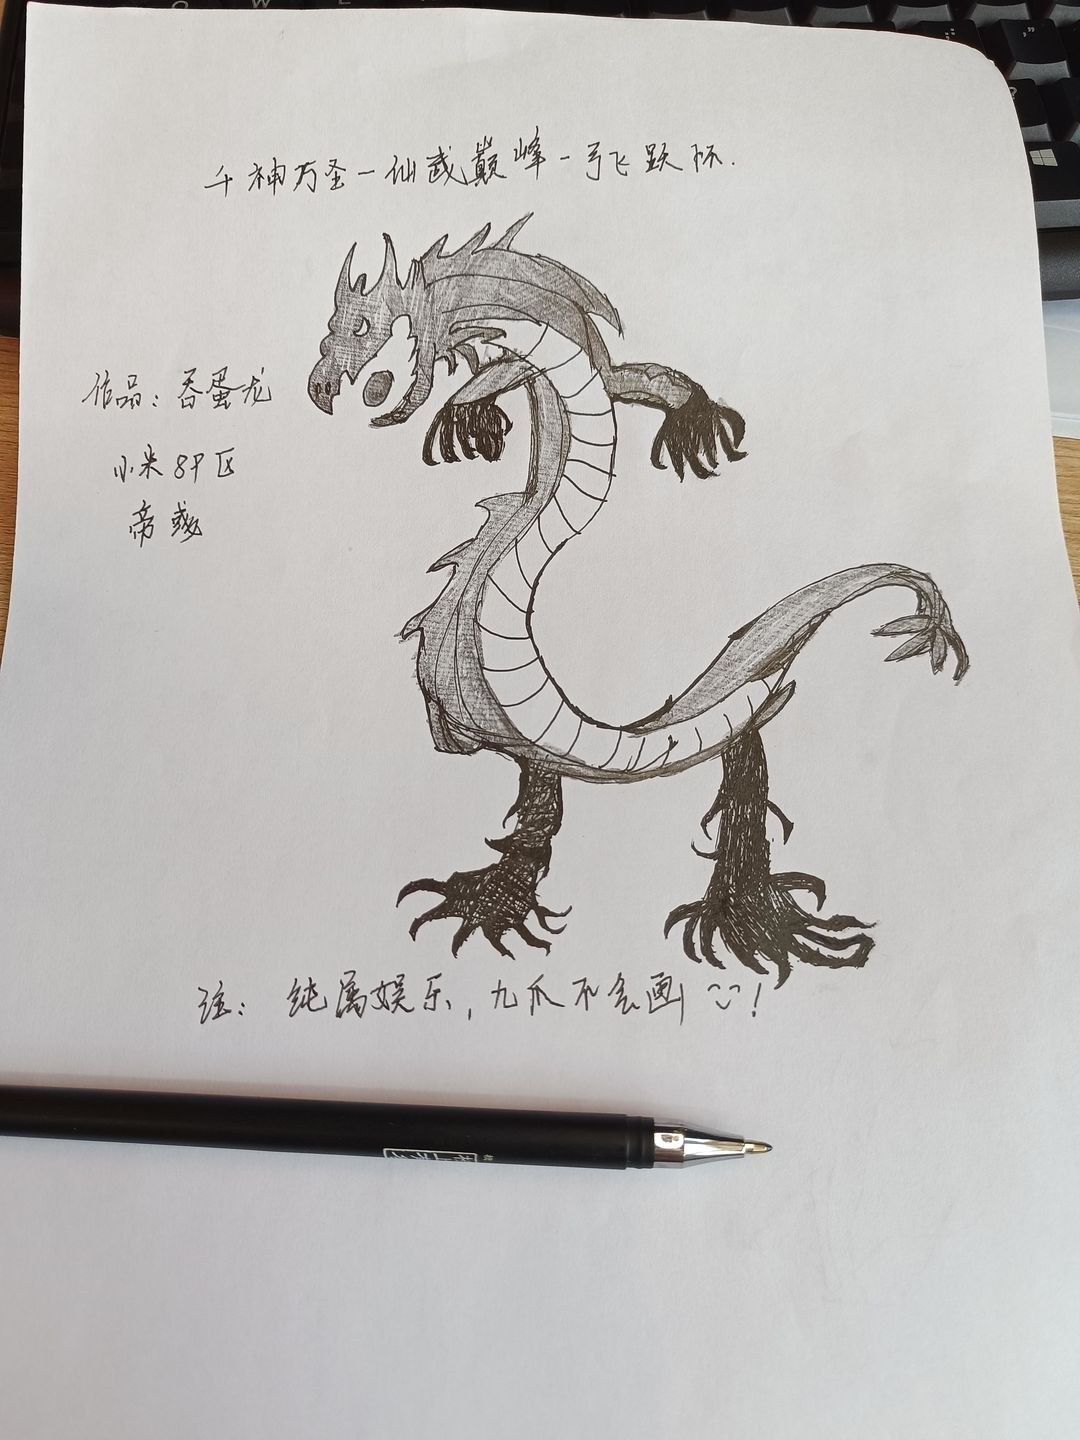 千神万圣-仙武巅峰-弓飞跃杯.
作品:吞蛋龙
小米8P区
帝彧
注: 纯属娱乐,九爪不会画!